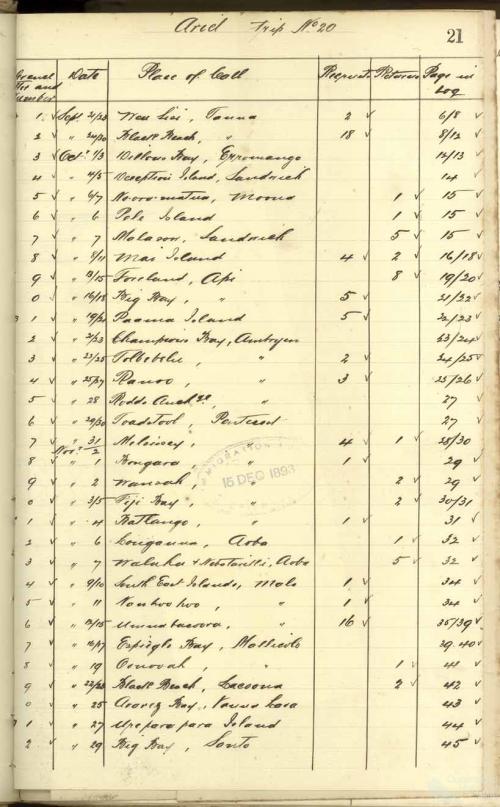 Ariel trip No 20
21
Date Place of Call Recruits Returns Page in Log
1 Sept 21/23 Tanna 2 6/8
2 " 24/30 Black Beach, " 18 8/12
3 Oct 1/3 Dillons Bay, Erromango 12/13
4 " 4/5 Deception Island, Sandwich 14
5 " 6/7 Moona 1 15
6 " 6 Pele Island 1 15
7 " 7 Sandwich 5 15
8 " 8/11 Mai Island 4 2 16/18
9 " 12/15 Foreland, Api 8 19/20
0 " 16/18 Big Bay, " 5 21/22
1 " 19/21 Paama Island 5 22/23
2 " 21/23 Champions Bay, Ambrym 23/24
3 " 23/25 " 2 24/25
4 " 25/27 Ranoo, " 3 25/26
5 " 28 Rodds Anchge, " 27
6 " 29/30 Toadstool, Pentecost 27
7 " 31 Nov 2 Melsisey, " 4 1 28/30
8 " 1 " 1 29
9 " 2 " 2 29
0 " 3/5 Fiji Bay, " 2 30/31
1 " 4 Batlango, " 1 31
2 " 6 Longanna, Aoba 1 32
3 " 7 Aoba 5 32
4 " 9/10 South East Islands, Malo 1 34
5 " 11 " 1 34
6 " 12/15 " 16 35/39
7 " 16/17 Espiegle Bay, Mallicolo 39.40
8 " 19 " 1 41
9 " 22/23 Black Beach, Lacoona 2 42
0 " 25 Avarez Bay, Vanua Lava 43
1 " 27 Ureparapara Island 44
2 " 29 Big Bay, Santo 45
IMMIGRATION
15 DEC 1893